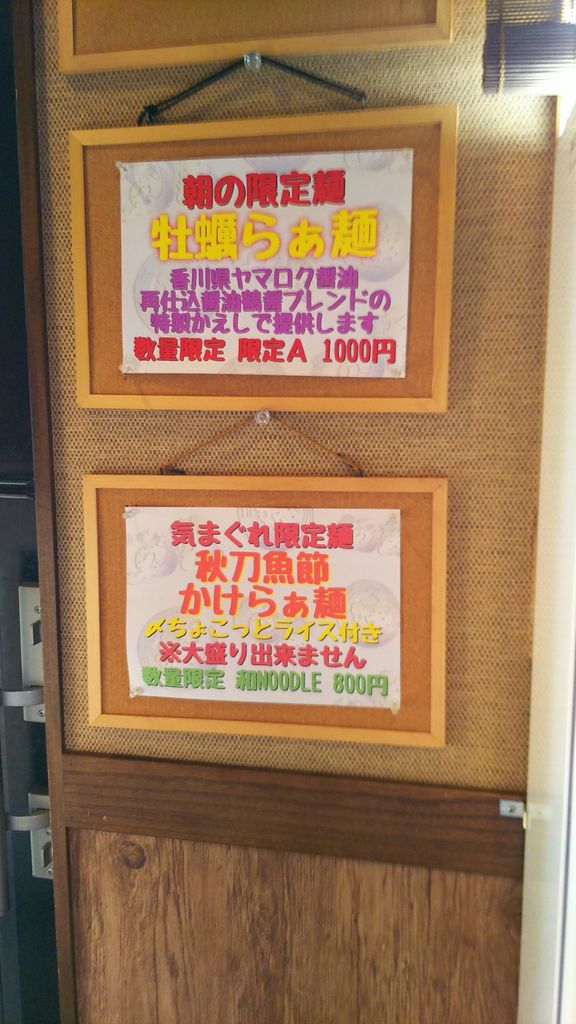 朝の限定麺
牡蠣らぁ麺
香川県ヤマロク醤油
再仕込醤油鶴醤ブレンドの
特製かえしで提供します
数量限定 限定A 1000円
気まぐれ限定麺
秋刀魚節
かけらぁ麺
〆ちょこっとライス付き
※大盛り出来ません
数量限定 和NOODLE 800円